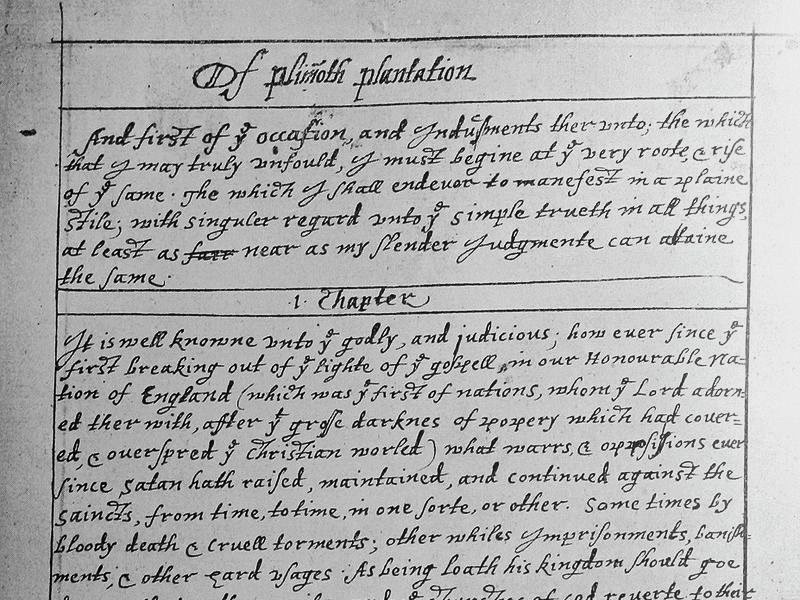 Of plim̃oth plantation
And first of yᵉ occasion, and Indusments ther vnto; the which
that I may truly vnfould, I must begine at yᵉ very roote, & rise
of yᵉ same. The which I shall endevor to manefest in a plaine
stile; with singuler regard vnto yᵉ simple trueth in all things,
at least as farr near as my slender Judgmente can attaine
the same.
1. Chapter
It is well knowne vnto yᵉ godly, and judicious; how ever since yᵉ
first breaking out of yᵉ lighte of yᵉ gospell, in our Honourable Na=
tion of England (which was yᵉ first of nations, whom yᵉ Lord adorn=
ed ther with, after yᵉ grosse darknes of popery which had cover=
ed, & overspred yᵉ Christian worled) what warrs, & oppossitions ever
since Satan hath raised, maintained, and continued against the
Saincts, from time, to time, in one sorte, or other. Some times by
bloody death & cruell torments; other whiles Imprisonments, banish=
ments, & other hard vsages. As being loath his kingdom should goe
reverte to their